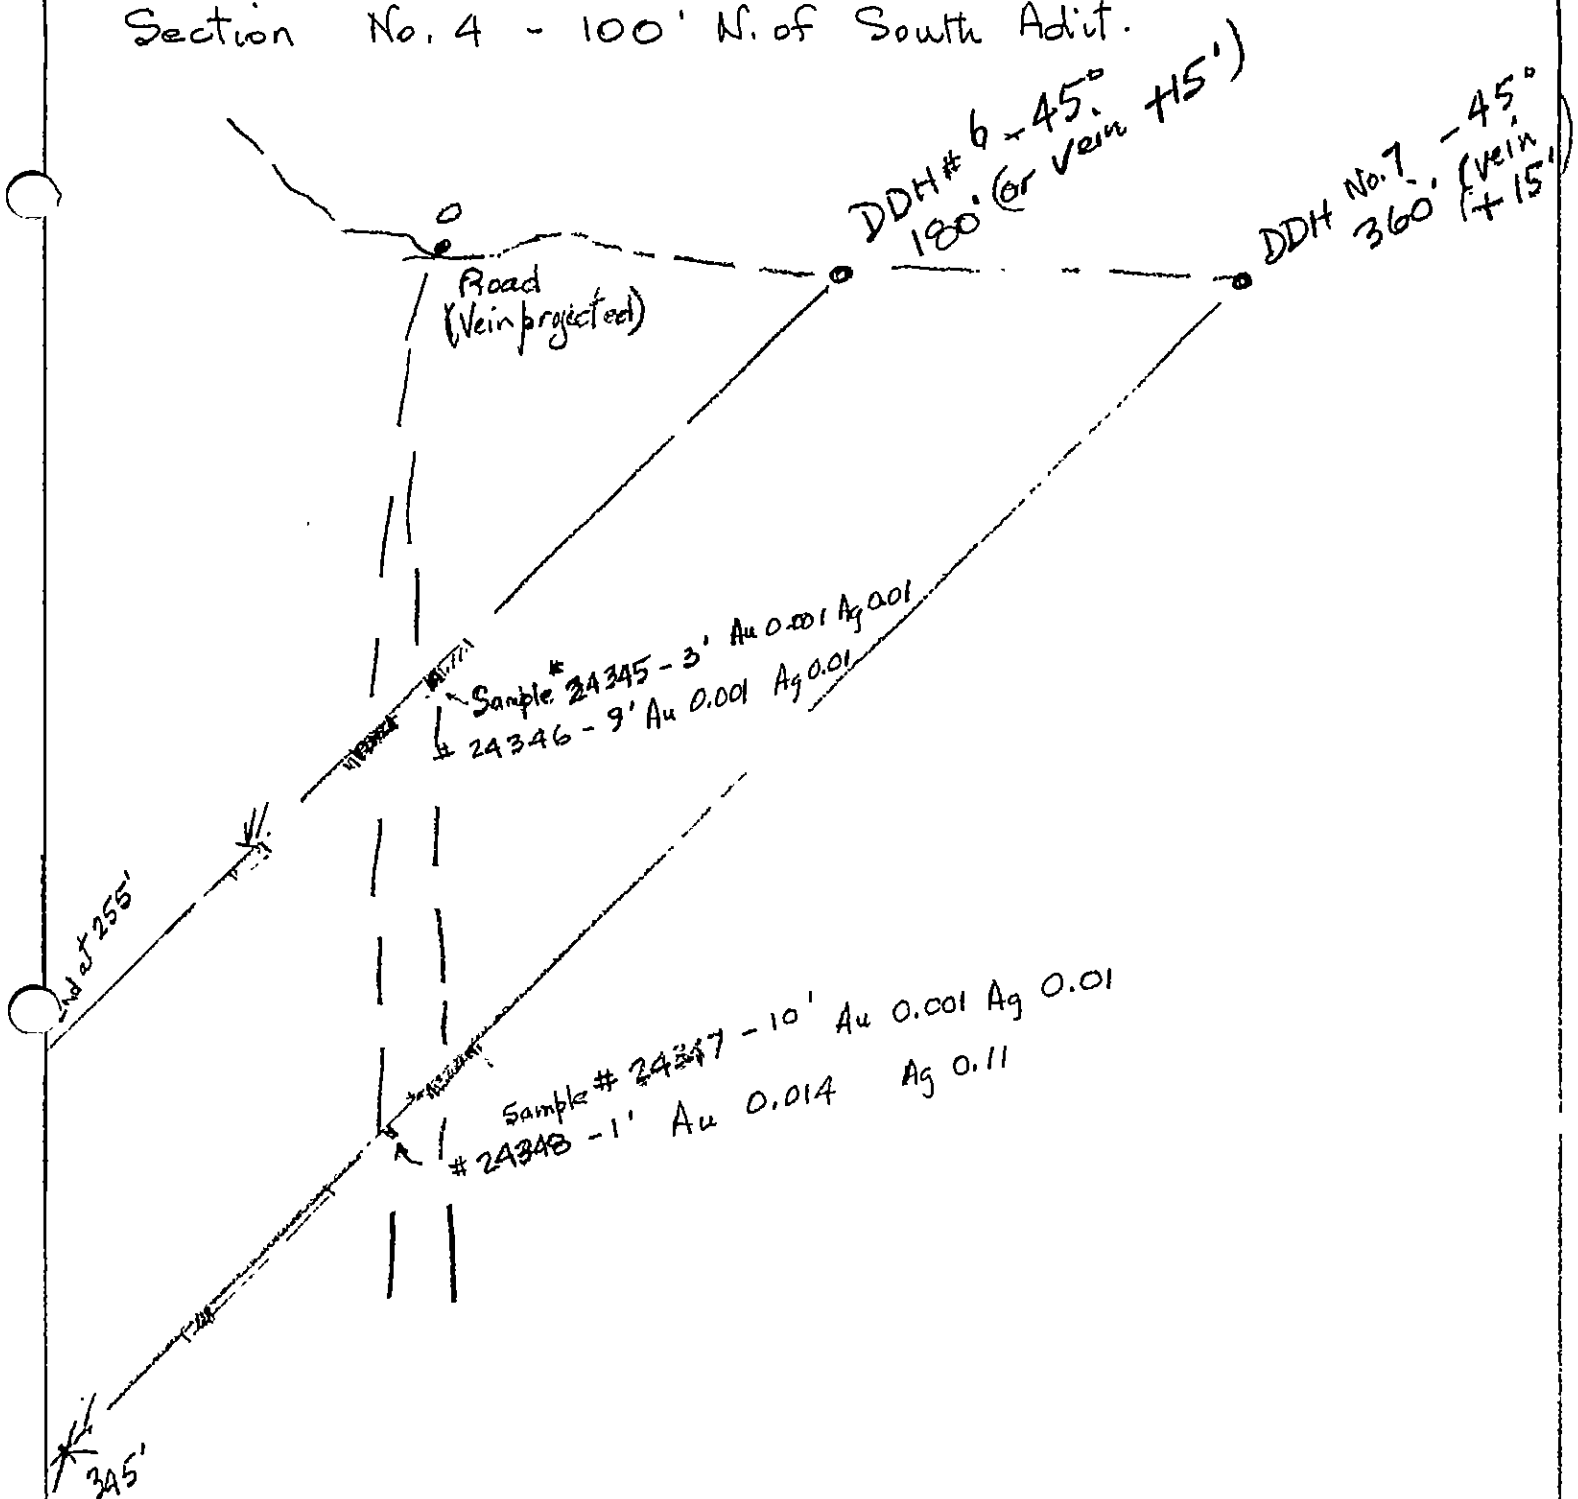 Section No. 4 - 100' N. of South Adit.
DDH # 6 - 45°
180' (or vein +15')
DDH No. 7 - 45°
360' (vein
+ 15')
Road
(Vein projected)
Sample # 24345 - 3' Au 0.001 Ag 0.01
# 24346 - 9' Au 0.001 Ag 0.01
End at 255'
Sample # 24347 - 10' Au 0.001 Ag 0.01
# 24348 - 1' Au 0.014 Ag 0.11
345'